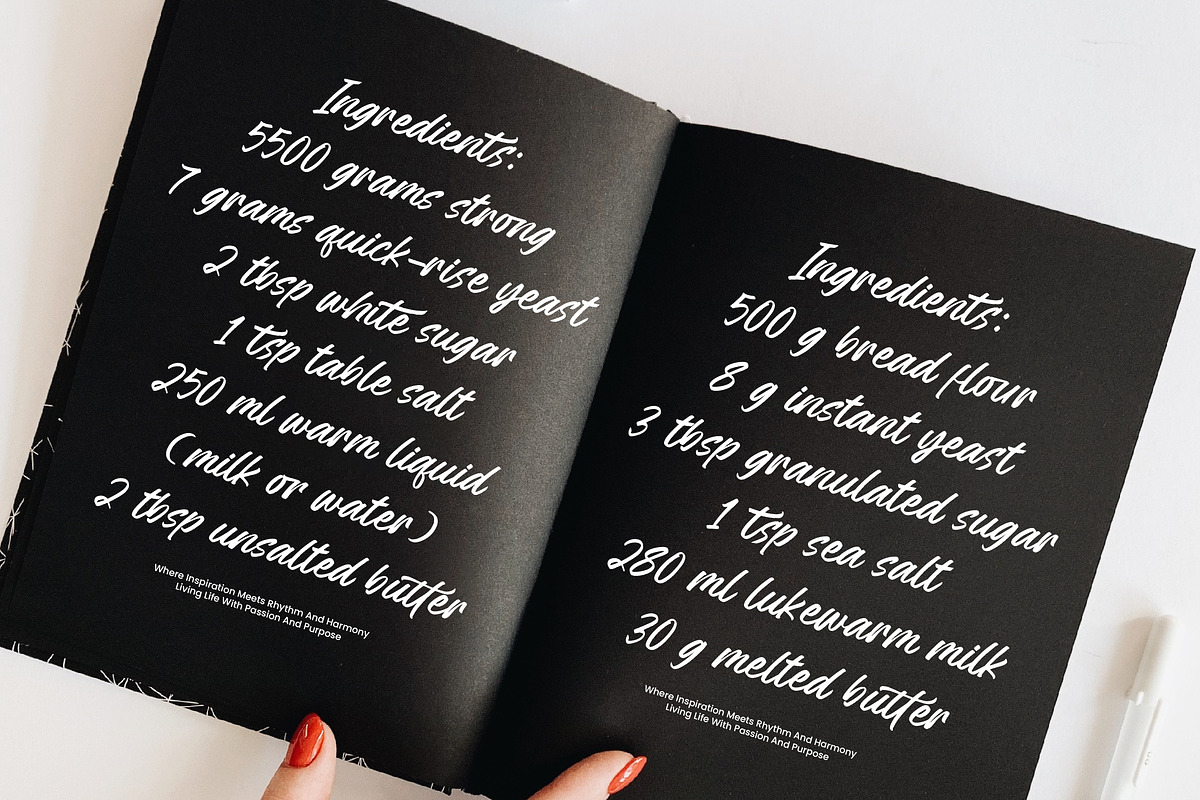 Ingredients:
5500 grams strong
7 grams quick-rise yeast
2 tbsp white sugar
1 tsp table salt
250 ml warm liquid
(milk or water)
2 tbsp unsalted butter
Where Inspiration Meets Rhythm And Harmony
Living Life With Passion And Purpose
Ingredients:
500 g bread flour
8 g instant yeast
3 tbsp granulated sugar
1 tsp sea salt
280 ml lukewarm milk
30 g melted butter
Where Inspiration Meets Rhythm And Harmony
Living Life With Passion And Purpose